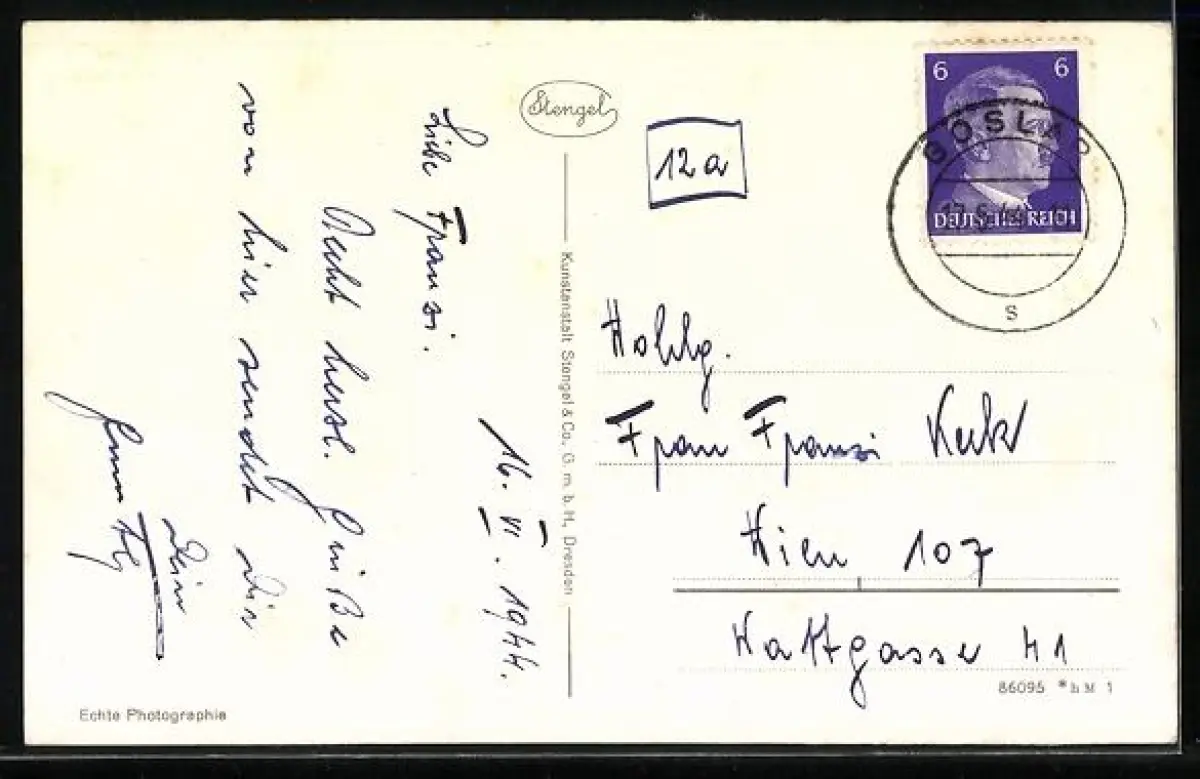 Stengel
12a
6 6
DEUTSCHES REICH
GOSLAR
17.6.44
s
16. VI. 1944.
Liebe Franzi.
Recht herzl. Grüße
von hier sendet Dir
Dein
Kunstanstalt Stengel & Co., G. m. b. H., Dresden
Frau Franzi
Wien 107
Wattgasse 41
86095 *h M 1
Echte Photographie